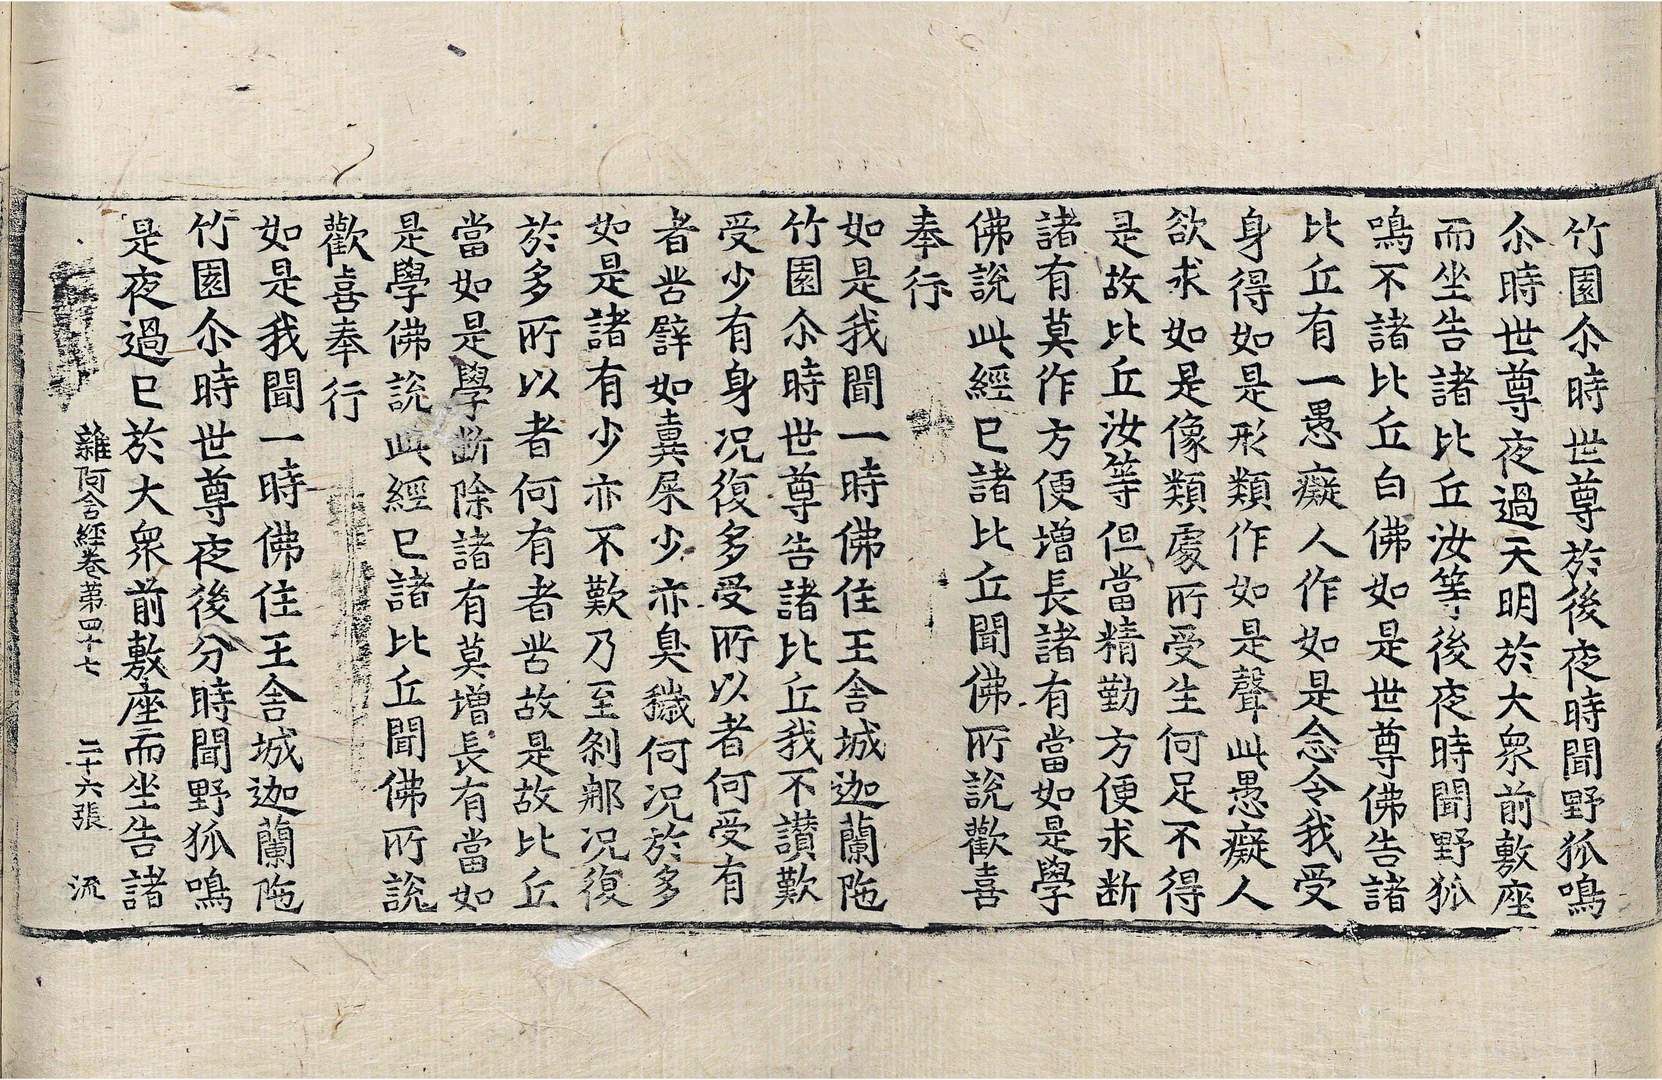 竹園尒時世尊於後夜時聞野狐鳴
尒時世尊夜過天明於大衆前敷座
而坐告諸比丘汝等後夜時聞野狐
鳴不諸比丘白佛如是世尊佛告諸
比丘有一愚癡人作如是念令我受
身得如是形類作如是聲此愚癡人
欲求如是像類處所受生何足不得
是故比丘汝等但當精勤方便求断
諸有莫作方便增長諸有當如是學
佛說此經已諸比丘聞佛所說歡喜
奉行
如是我聞一時佛住王舍城迦蘭陁
竹園尒時世尊告諸比丘我不讃歎
受少有身況復多受所以者何受有
者苦譬如糞屎少亦臭穢何況於多
如是諸有少亦不歎乃至剎那況復
於多所以者何有者苦故是故比丘
當如是學断除諸有莫增長有當如
是學佛說此經已諸比丘聞佛所說
歡喜奉行
如是我聞一時佛住王舍城迦蘭陁
竹園尒時世尊夜後分時聞野狐鳴
是夜過已於大衆前敷座而坐告諸
雜阿含經卷第四十七 二十六張 流